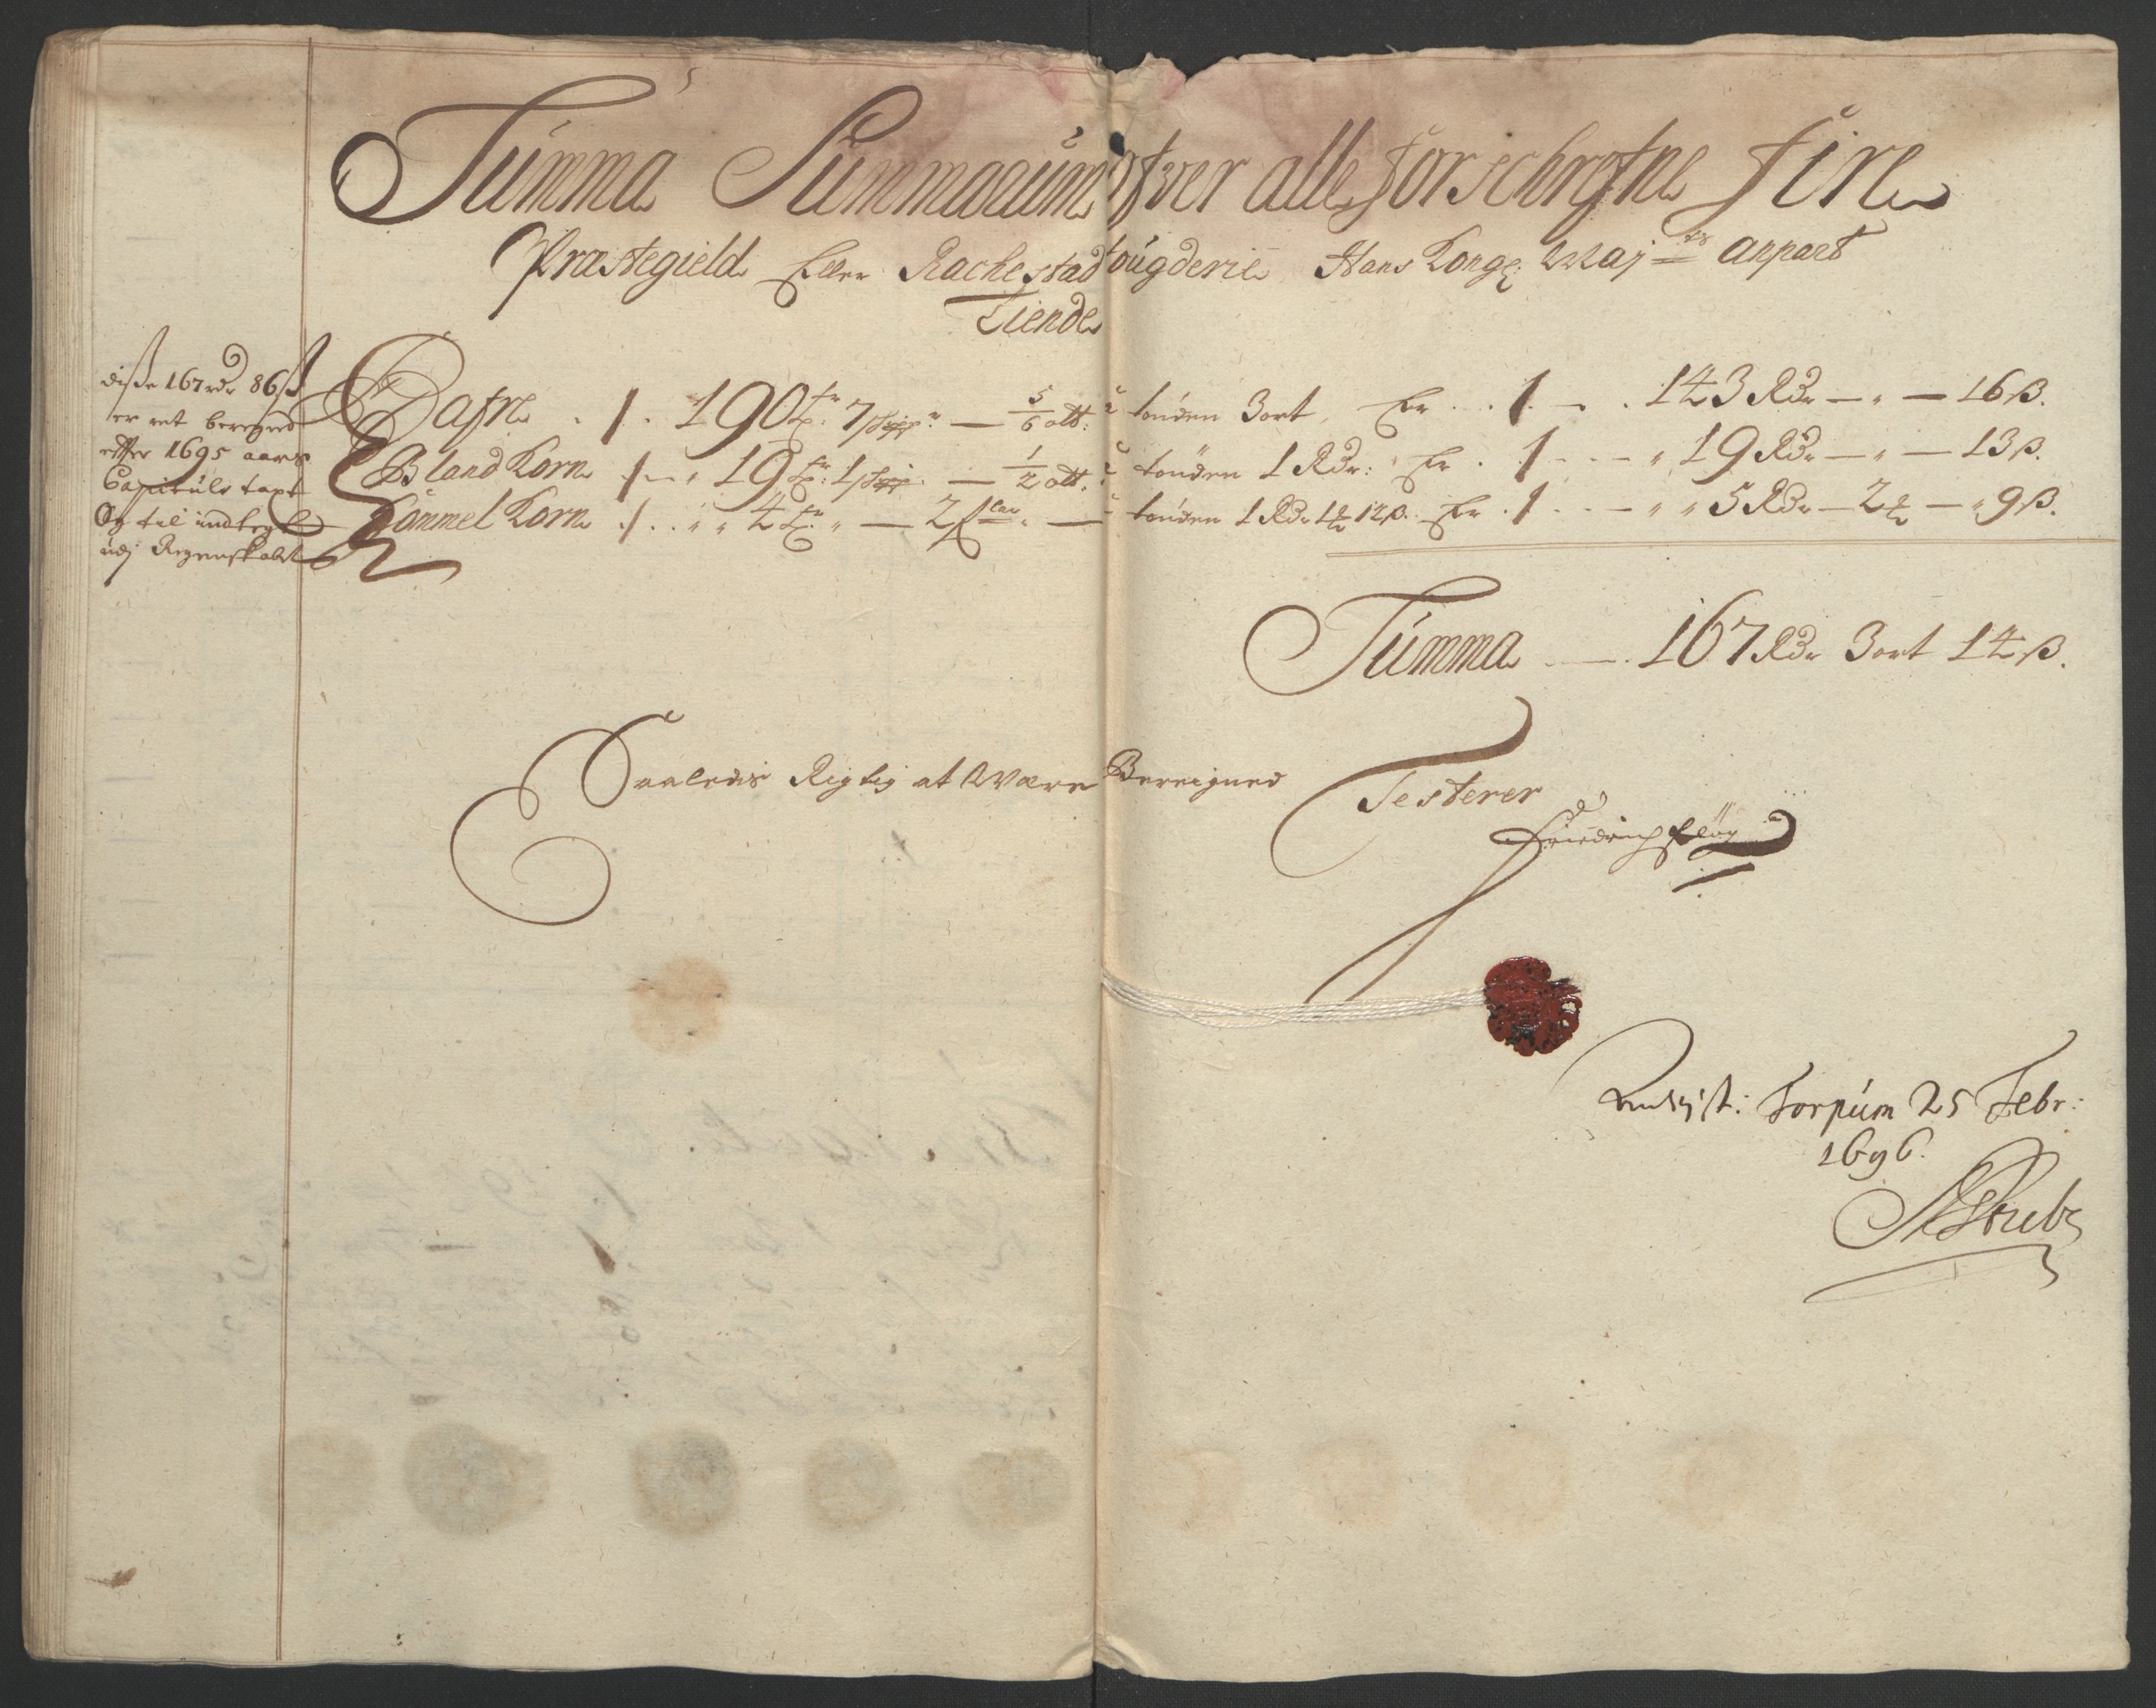 Summa Summarum ofver alle forschrefne fire
Præstegield Eller Rachestad fougderie Hans Kongl: Maj:ts anpart
Tiende
disse 167 rdr 86 ß
er ret beregned
effter 1695 aars
Capituls taxt
Og til indtegt
udj Regenskabet
Hafre . /. 190 tr: 7 skipr: — 5/6 ott: à tonden 3 ort, Er . /. 143 Rdr — " — 16 ß.
Bland Korn /. " 19 tr: 1 skip: — 1/2 ott: à tonden 1 Rdr: Er . /. " 19 Rdr — " — 13 ß.
Gommel Korn /. " " 4 tr " — 2 — à tonden 1 Rdr 1 12 ß. Er . /. " " 5 Rdr — 2 — " 9 ß.
Summa — 167 Rdr 3 ort 14 ß.
Saaledis Rigtig at Være Bereigned Testerer
Friedrich
Torpum 25 Febr:
1696.